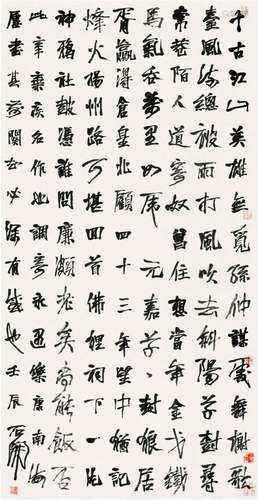 千古江山英雄無覓孫仲謀處舞榭歌
臺風流總被雨打風吹去斜陽草樹尋
常巷陌人道寄奴曾住想當年金戈鐵
馬氣吞萬里如虎元嘉草草封狼居
胥贏得倉皇北顧四十三年望中猶記
烽火揚州路可堪回首佛狸祠下一片
神鴉社鼓憑誰問廉頗老矣尚能飯否
此辛棄疾名作也調寄永遇樂康南海
屢書其必深有感也壬辰